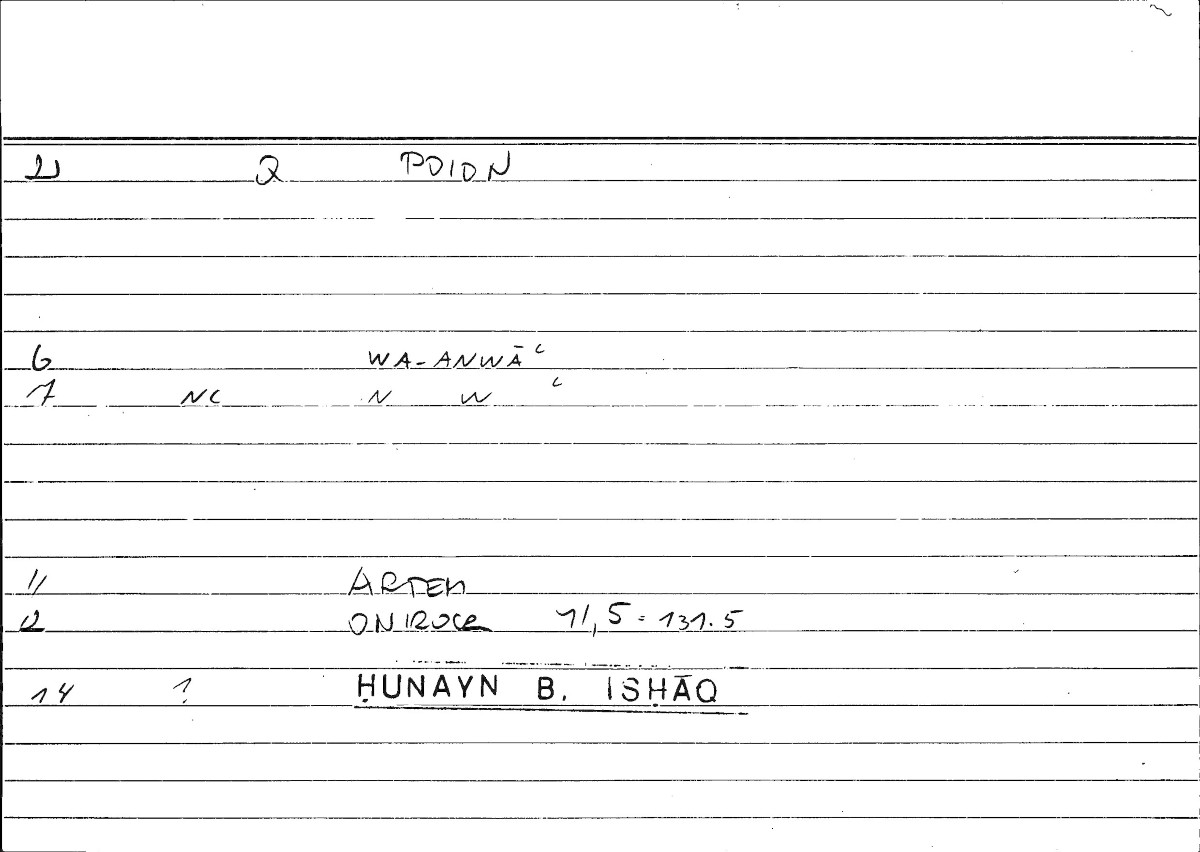 Q POION
6 WA-ANWĀʿ
7 NC N W ʿ
11 ARTEM
ONIROCR 1/,5 = 131.5
14 1 ḤUNAYN B. ISḤĀQ